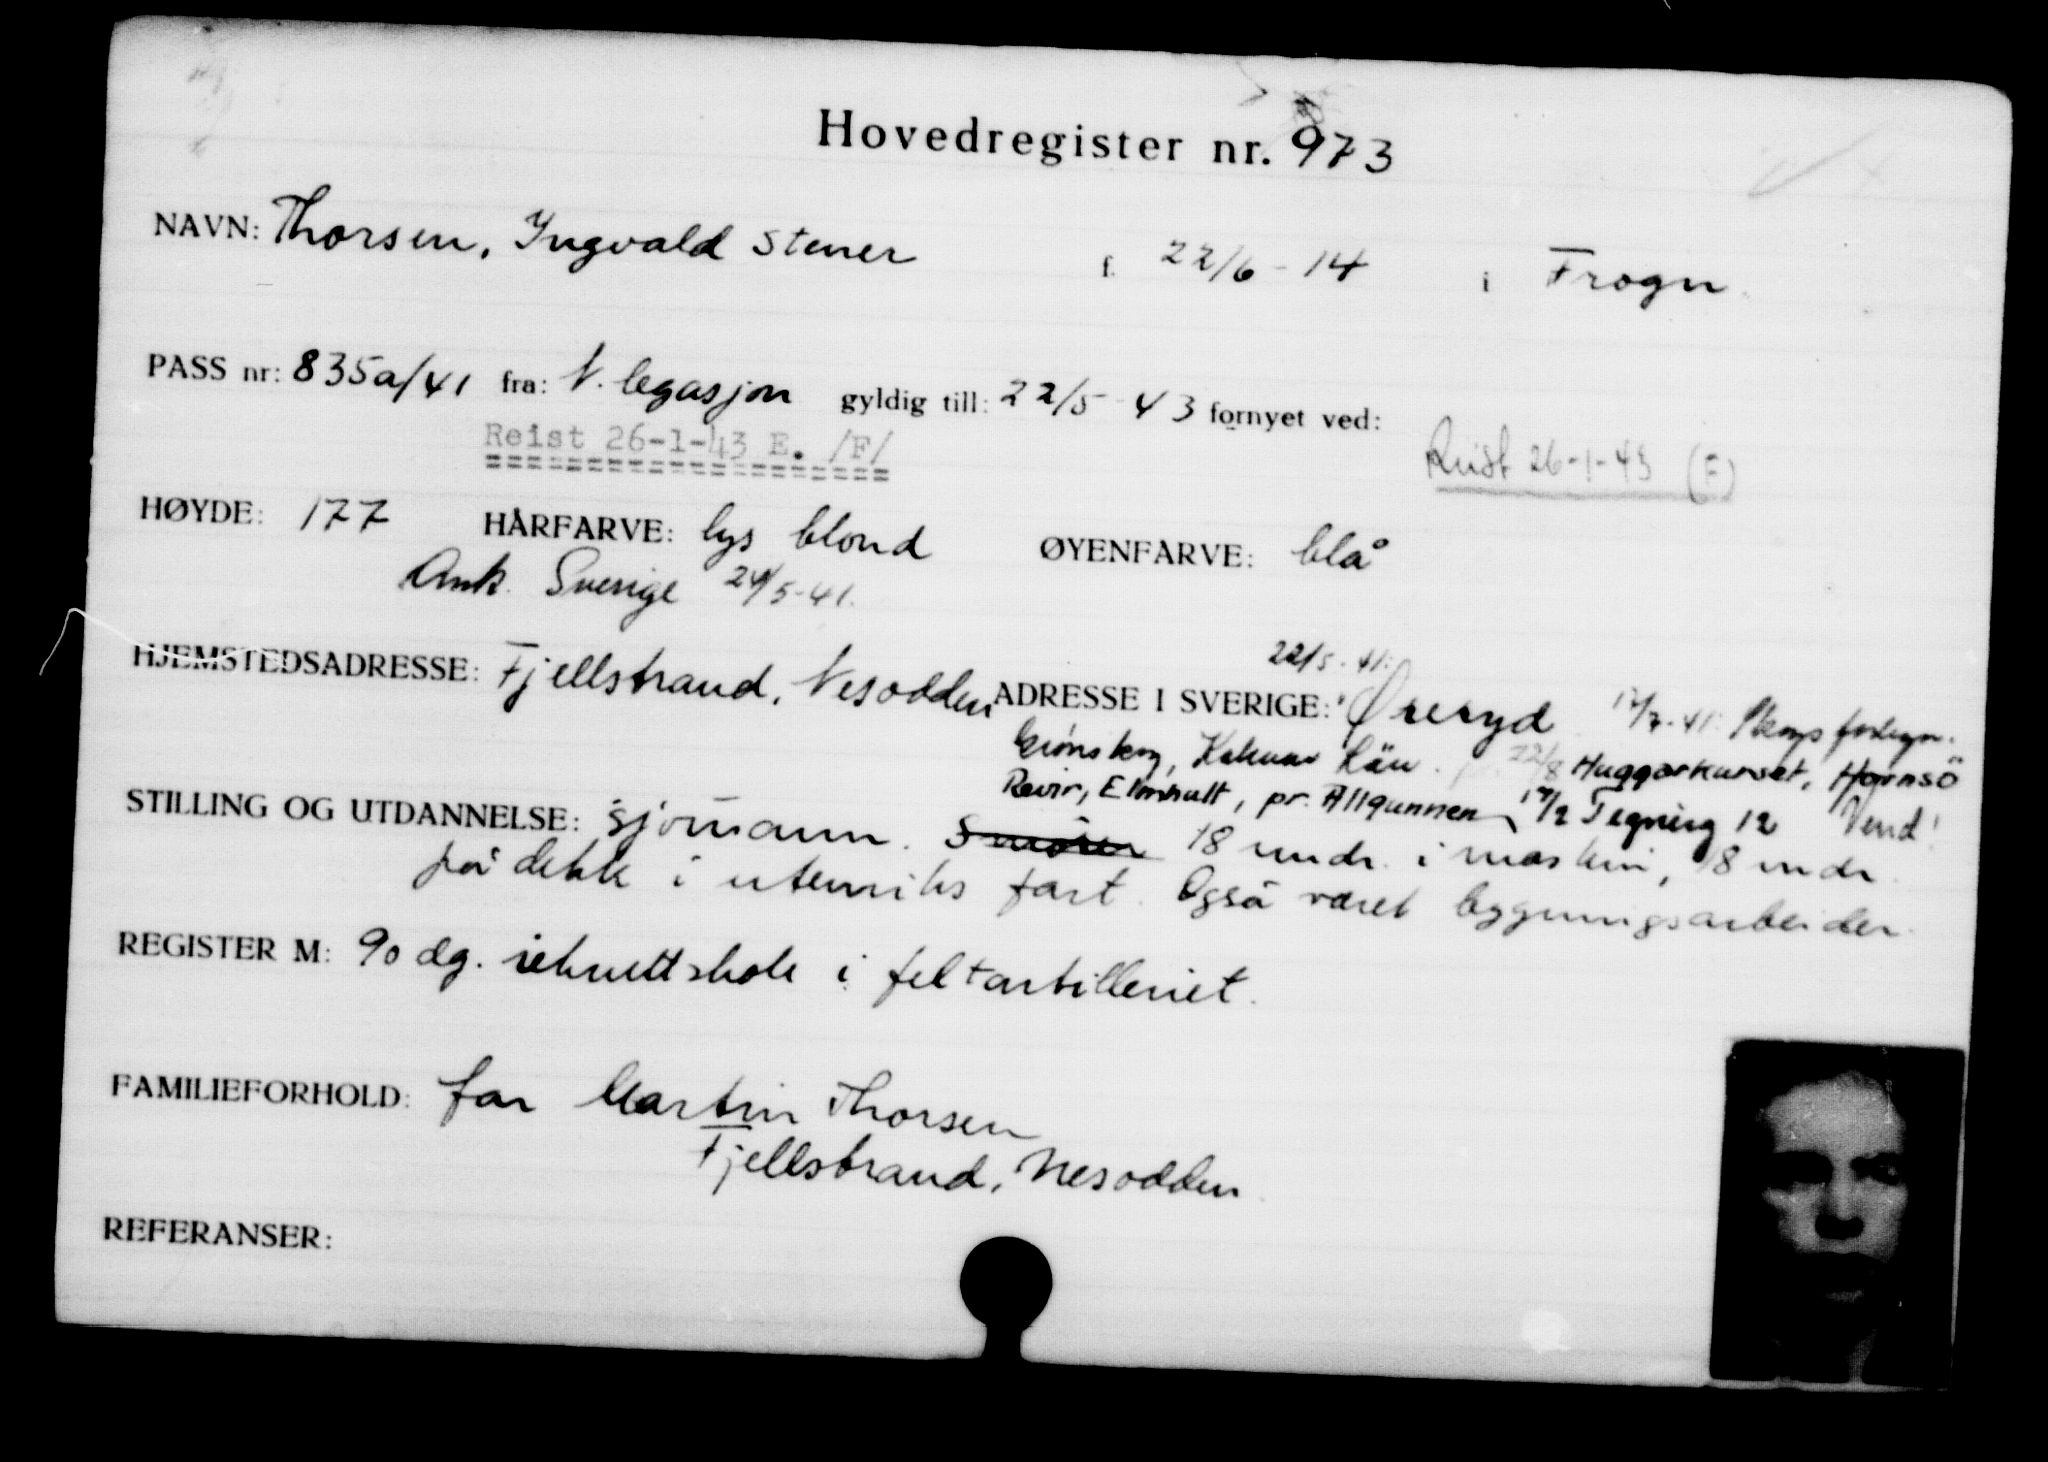 Hovedregister nr. 973
NAVN: Thorsen, Yngvald Stener f. 22/6-14 i Frogn.
PASS nr: 835a/41 fra: N. legasjon gyldig till: 22/5-43 fornyet ved:
Reist 26-1-43 E. /F/ Reist 26-1-43 (F)
HØYDE: 177 HÅRFARVE: lys blond ØYENFARVE: blå
Ank. Sverige 24/5-41.
22/5-41:
HJEMSTEDSADRESSE: Fjellstrand, Nesodden ADRESSE I SVERIGE: Øreryd 17/7-41:
Län. 22/8 Huggarkurset, Hornsö
Revir, pr. Allgunnen, Tegnérg 12 Vend!
STILLING OG UTDANNELSE: sjömann. 18 mndr. i maskin, 18 mndr
på dekk i utenriks fart. Også været bygningsarbeider.
REGISTER M: 90 dg. rekruttskole i feltartilleriet.
FAMILIEFORHOLD: far Martin Thorsen
Fjellstrand, Nesodden.
REFERANSER: